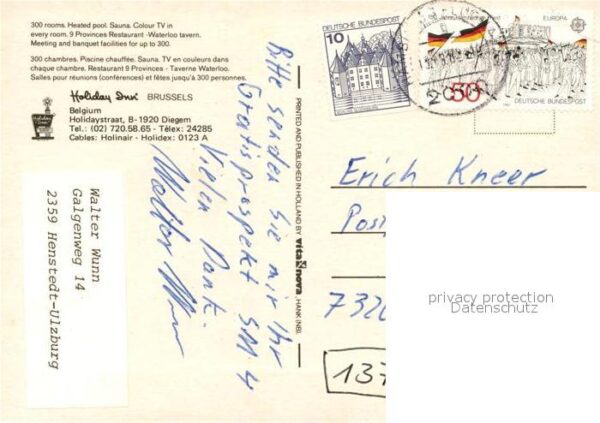 300 rooms. Heated pool. Sauna. Colour TV in
every room. 9 Provinces Restaurant -Waterloo tavern.
Meeting and banquet facilities for up to 300.
300 chambres. Piscine chauffée. Sauna. TV en couleurs dans
chaque chambre. Restaurant 9 Provinces - Taverne Waterloo.
Salles pour réunions (conférences) et fêtes jusqu'à 300 personnes.
Holiday Inn BRUSSELS
Belgium
Holidaystraat, B-1920 Diegem
Tel.: (02) 720.58.65 - Télex: 24285
Cables: Holinair - Holidex: 0123 A
Walter Wunn
Galgenweg 14
2359 Henstedt-Ulzburg
Bitte senden Sie mir Ihr
Gratisprospekt SM 4
Vielen Dank.
Walter Wunn
PRINTED AND PUBLISHED IN HOLLAND BY vita nova, HANK (NB).
DEUTSCHE BUNDESPOST
10
EUROPA
50
DEUTSCHE BUNDESPOST
Erich Kneer
Post
732
137
privacy protection
Datenschutz